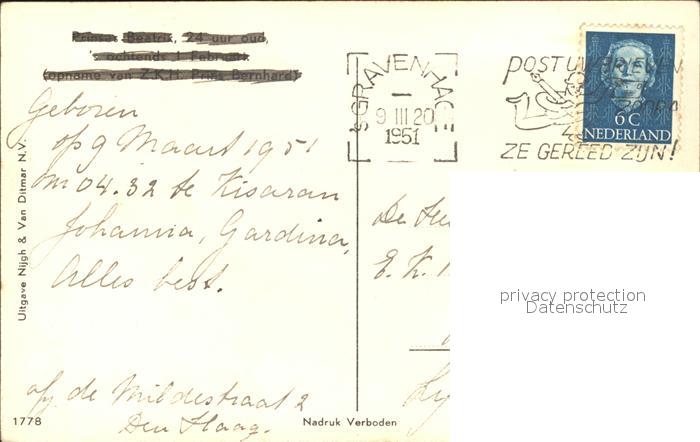 Prinses Beatrix, 24 uur oud,
's ochtends 1 Februari
(opname van Z.K.H. Prins Bernhard)
Geboren
op 9 Maart 1951
om 04.32 te Kisaran
Johanna, Gardina,
Alles best.
afz de Mildestraat 2
Den Haag.
1778
Nadruk Verboden
Uitgave Nijgh & Van Ditmar N.V.
'sGRAVENHAGE
9 III 20
1951
POST UW
ZE GEREED ZIJN!
6 C
NEDERLAND
De
E. K.
privacy protection
Datenschutz